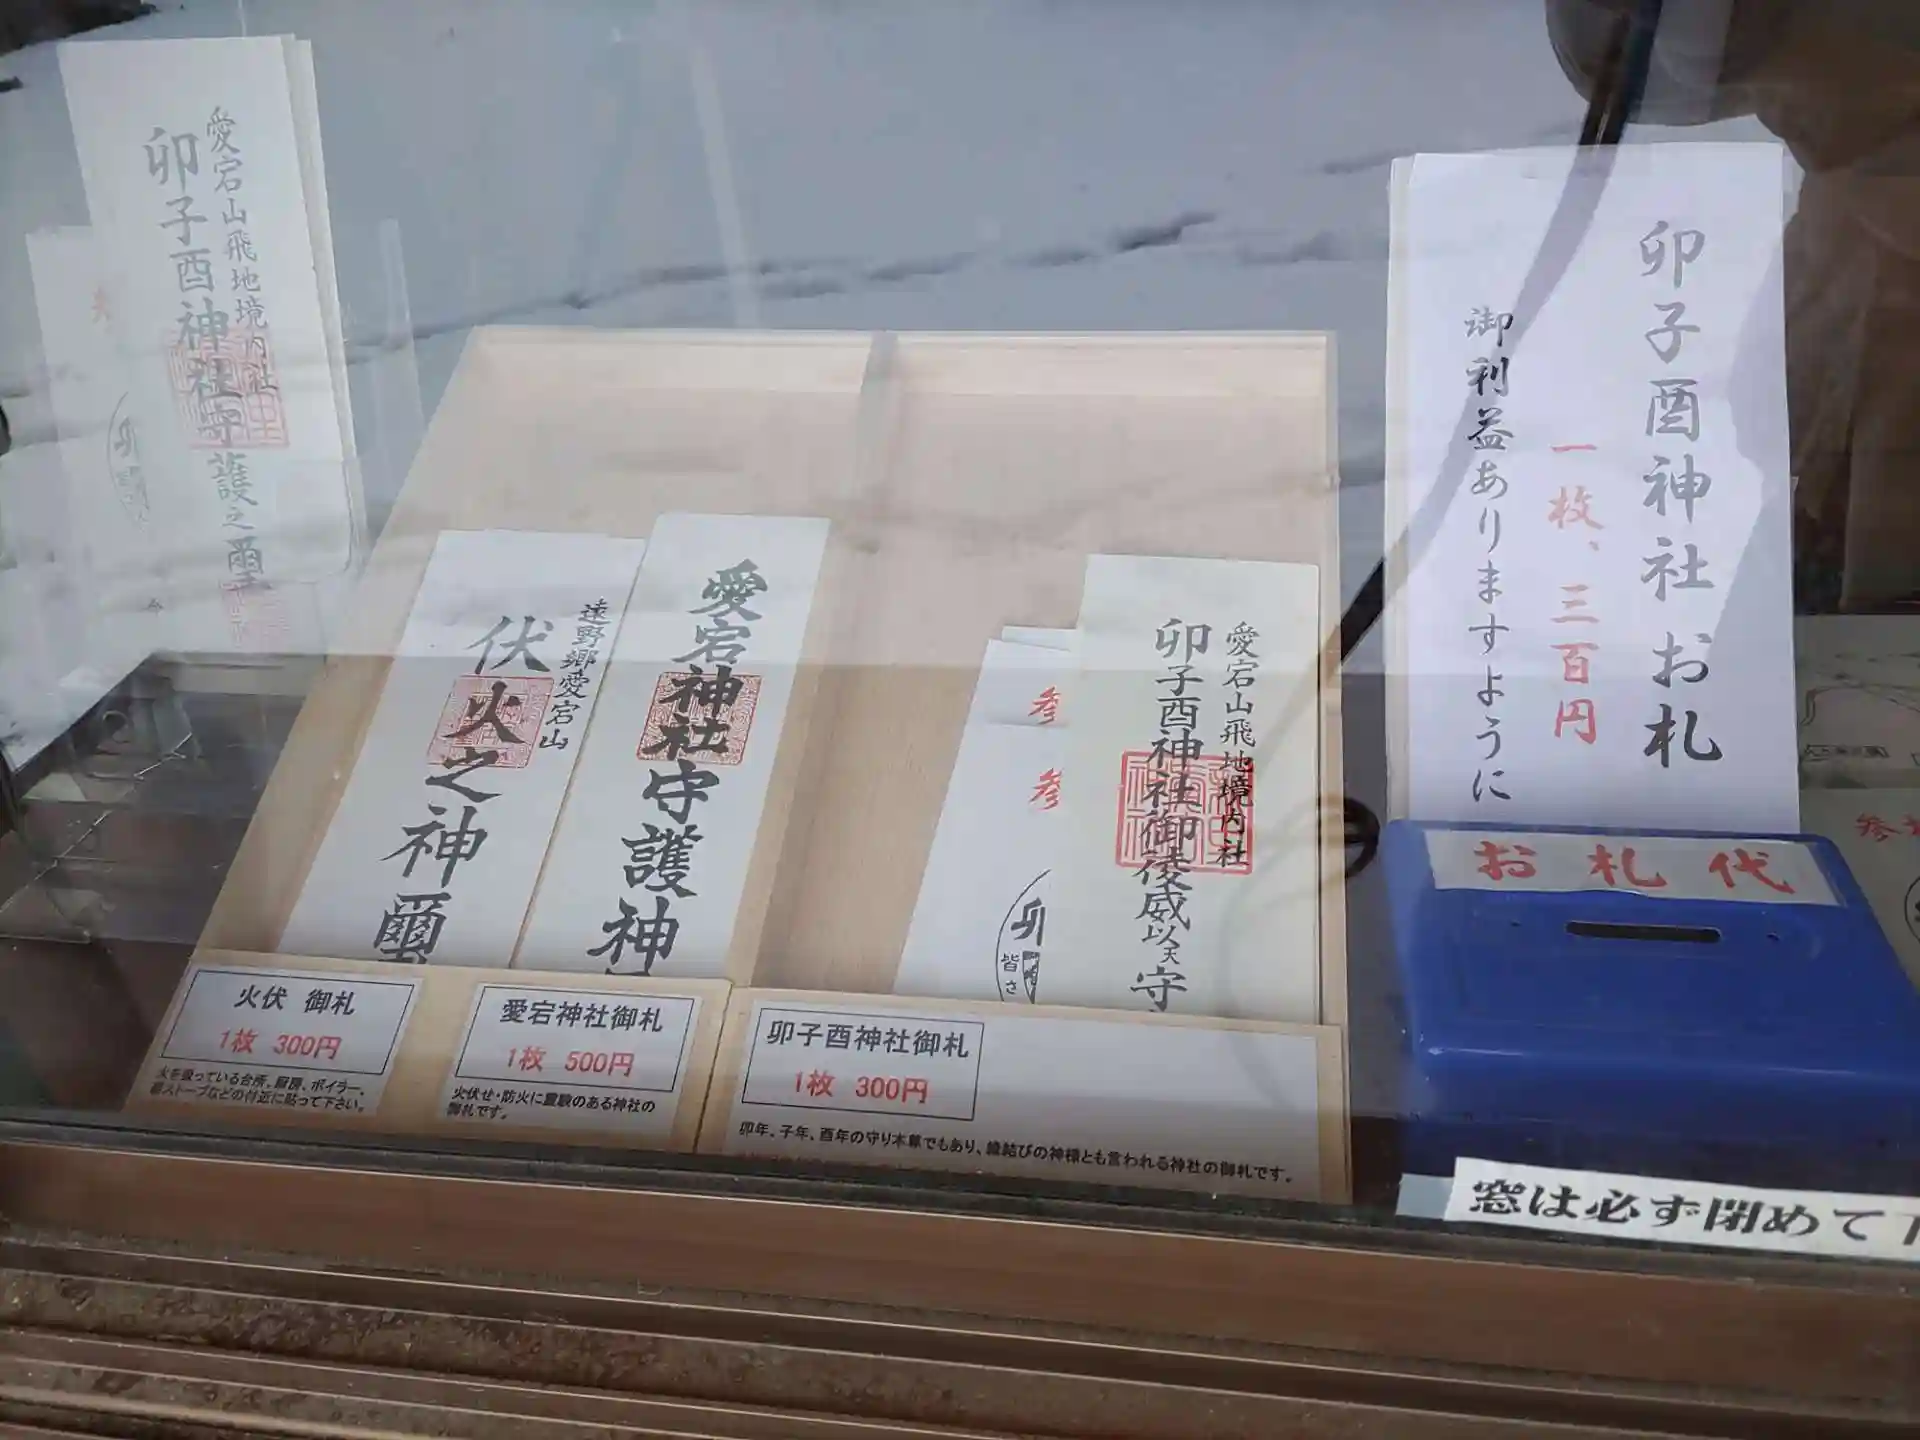 愛宕山飛地境内社
卯子酉神社守護之爾
遠野郷愛宕山
伏火之神爾
愛宕神社守護神
愛宕山飛地境内社
卯子酉神社御稜威以天守
参
参
卯
皆さ
卯子酉神社お札
一枚、三百円
御利益ありますように
お札代
火伏 御札
1枚 300円
火を扱っている台所、厨房、ボイラー、
薪ストーブなどの付近に貼って下さい。
愛宕神社御札
1枚 500円
火伏せ・防火に霊験のある神社の
御札です。
卯子酉神社御札
1枚 300円
卯年、子年、酉年の守り本尊でもあり、縁結びの神様とも言われる神社の御札です。
窓は必ず閉めて下